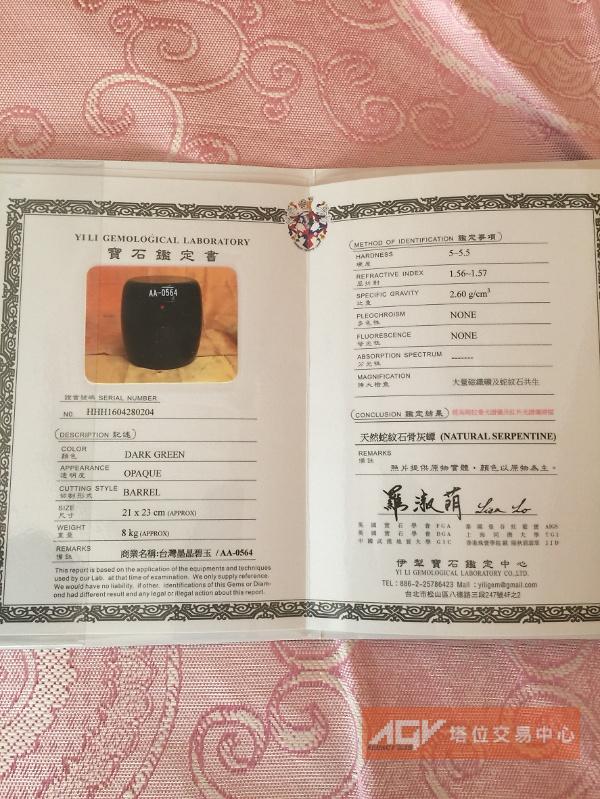 YI LI GEMOLOGICAL LABORATORY
寶石鑑定書
AA-0564
證書號碼 SERIAL NUMBER
NO. HHH1604280204
DESCRIPTION 記述
COLOR 顏色 DARK GREEN
APPEARANCE 透明度 OPAQUE
CUTTING STYLE 切割形式 BARREL
SIZE 尺寸 21 x 23 cm (APPROX)
WEIGHT 重量 8 kg (APPROX)
REMARKS 備註 商業名稱:台灣墨晶碧玉 / AA-0564
This report is based on the application of the equipments and techniques
used by our Lab. at that time of examination. We only supply reference.
We would have no liability, if other. identifications of this Gems or Diam-
ond had different result and any legal or illegal action about this report.
METHOD OF IDENTIFICATION 鑑定事項
HARDNESS 硬度 5-5.5
REFRACTIVE INDEX 屈折射 1.56-1.57
SPECIFIC GRAVITY 比重 2.60 g/cm³
PLEOCHROISM 多色性 NONE
FLUORESCENCE 螢光性 NONE
ABSORPTION SPECTRUM 分光性 -------
MAGNIFICATION 擴大檢查 大量磁鐵礦及蛇紋石共生
CONCLUSION 鑑定結果
天然蛇紋石骨灰罈 (NATURAL SERPENTINE)
REMARKS
備註
照片提供原物實體，顏色以原物為主。
羅淑萌 Lisa Lo
英國寶石學會 FGA
英國鑽石學會 DGA
中國武漢地質大學 GIC
泰國曼谷玫瑰寶 AIGS
上海同濟大學 TGI
伊犁寶石鑑定中心
YI LI GEMOLOGICAL LABORATORY CO.,LTD.
TEL：886-2-25786423 Mail：yiligem@gmail.com
台北市松山區八德路三段247號4F之2
AGV 塔位交易中心